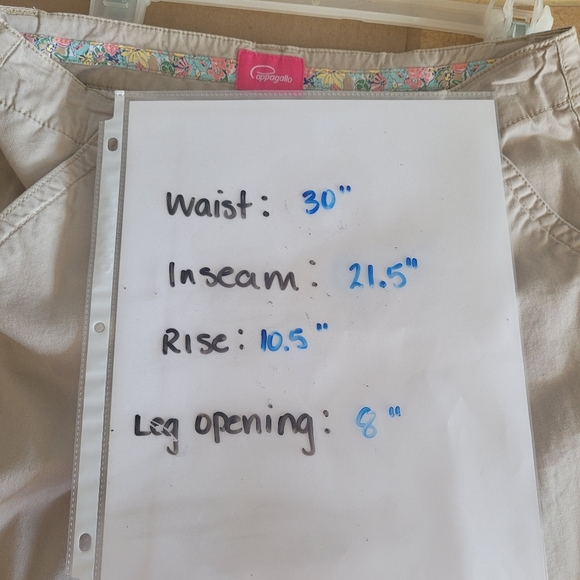 Pappagallo
Waist: 30"
Inseam: 21.5"
Rise: 10.5"
Leg opening: 8"